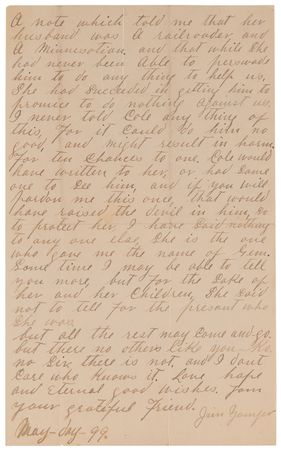 A note which told me that her
husband was A railroader, and
A Minnesotian. and that while She
had never been Able to perswade
him to do any thing to help us.
She had Succeeded in getting him to
promice to do nothing against us.
I never told Cole any thing of
this, For it Could do him no
good, and might result in harm.
For ten Chances to one, Cole would
have written to her, or had Some
one to See him, and if you will
pardon me this once, that would
have raised the devil in him, So
to protect her I have Said nothing
to any one else, She is the one
who gave me the name of Gem.
Some time I may be able to tell
you more, but for the Sake of
her and her Children, She Said
not to tell for the present who
She was.
but all the rest may Come and go.
but there no others like you
no Sir there is not, and I dont
Care who knows it. Love, hope
and Eternal good wishes. from
your grateful Friend.
Jim Younger
May-day-99.